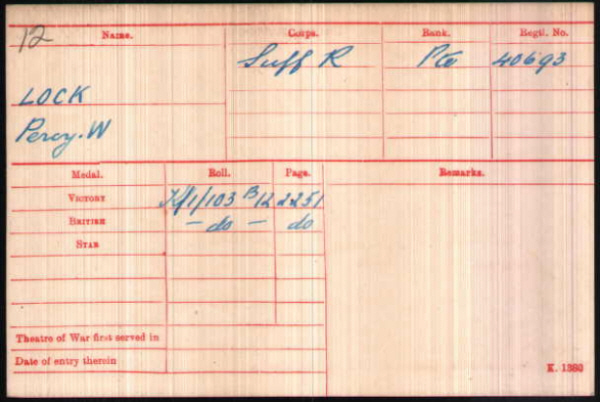 12 Name. Corps. Rank. Regtl. No.
Suff R Pte 40693
LOCK
Percy. W
Medal. Roll. Page. Remarks.
VICTORY K/1/103 B12 2251
BRITISH - do - do
STAR
Theatre of War first served in
Date of entry therein
K. 1380